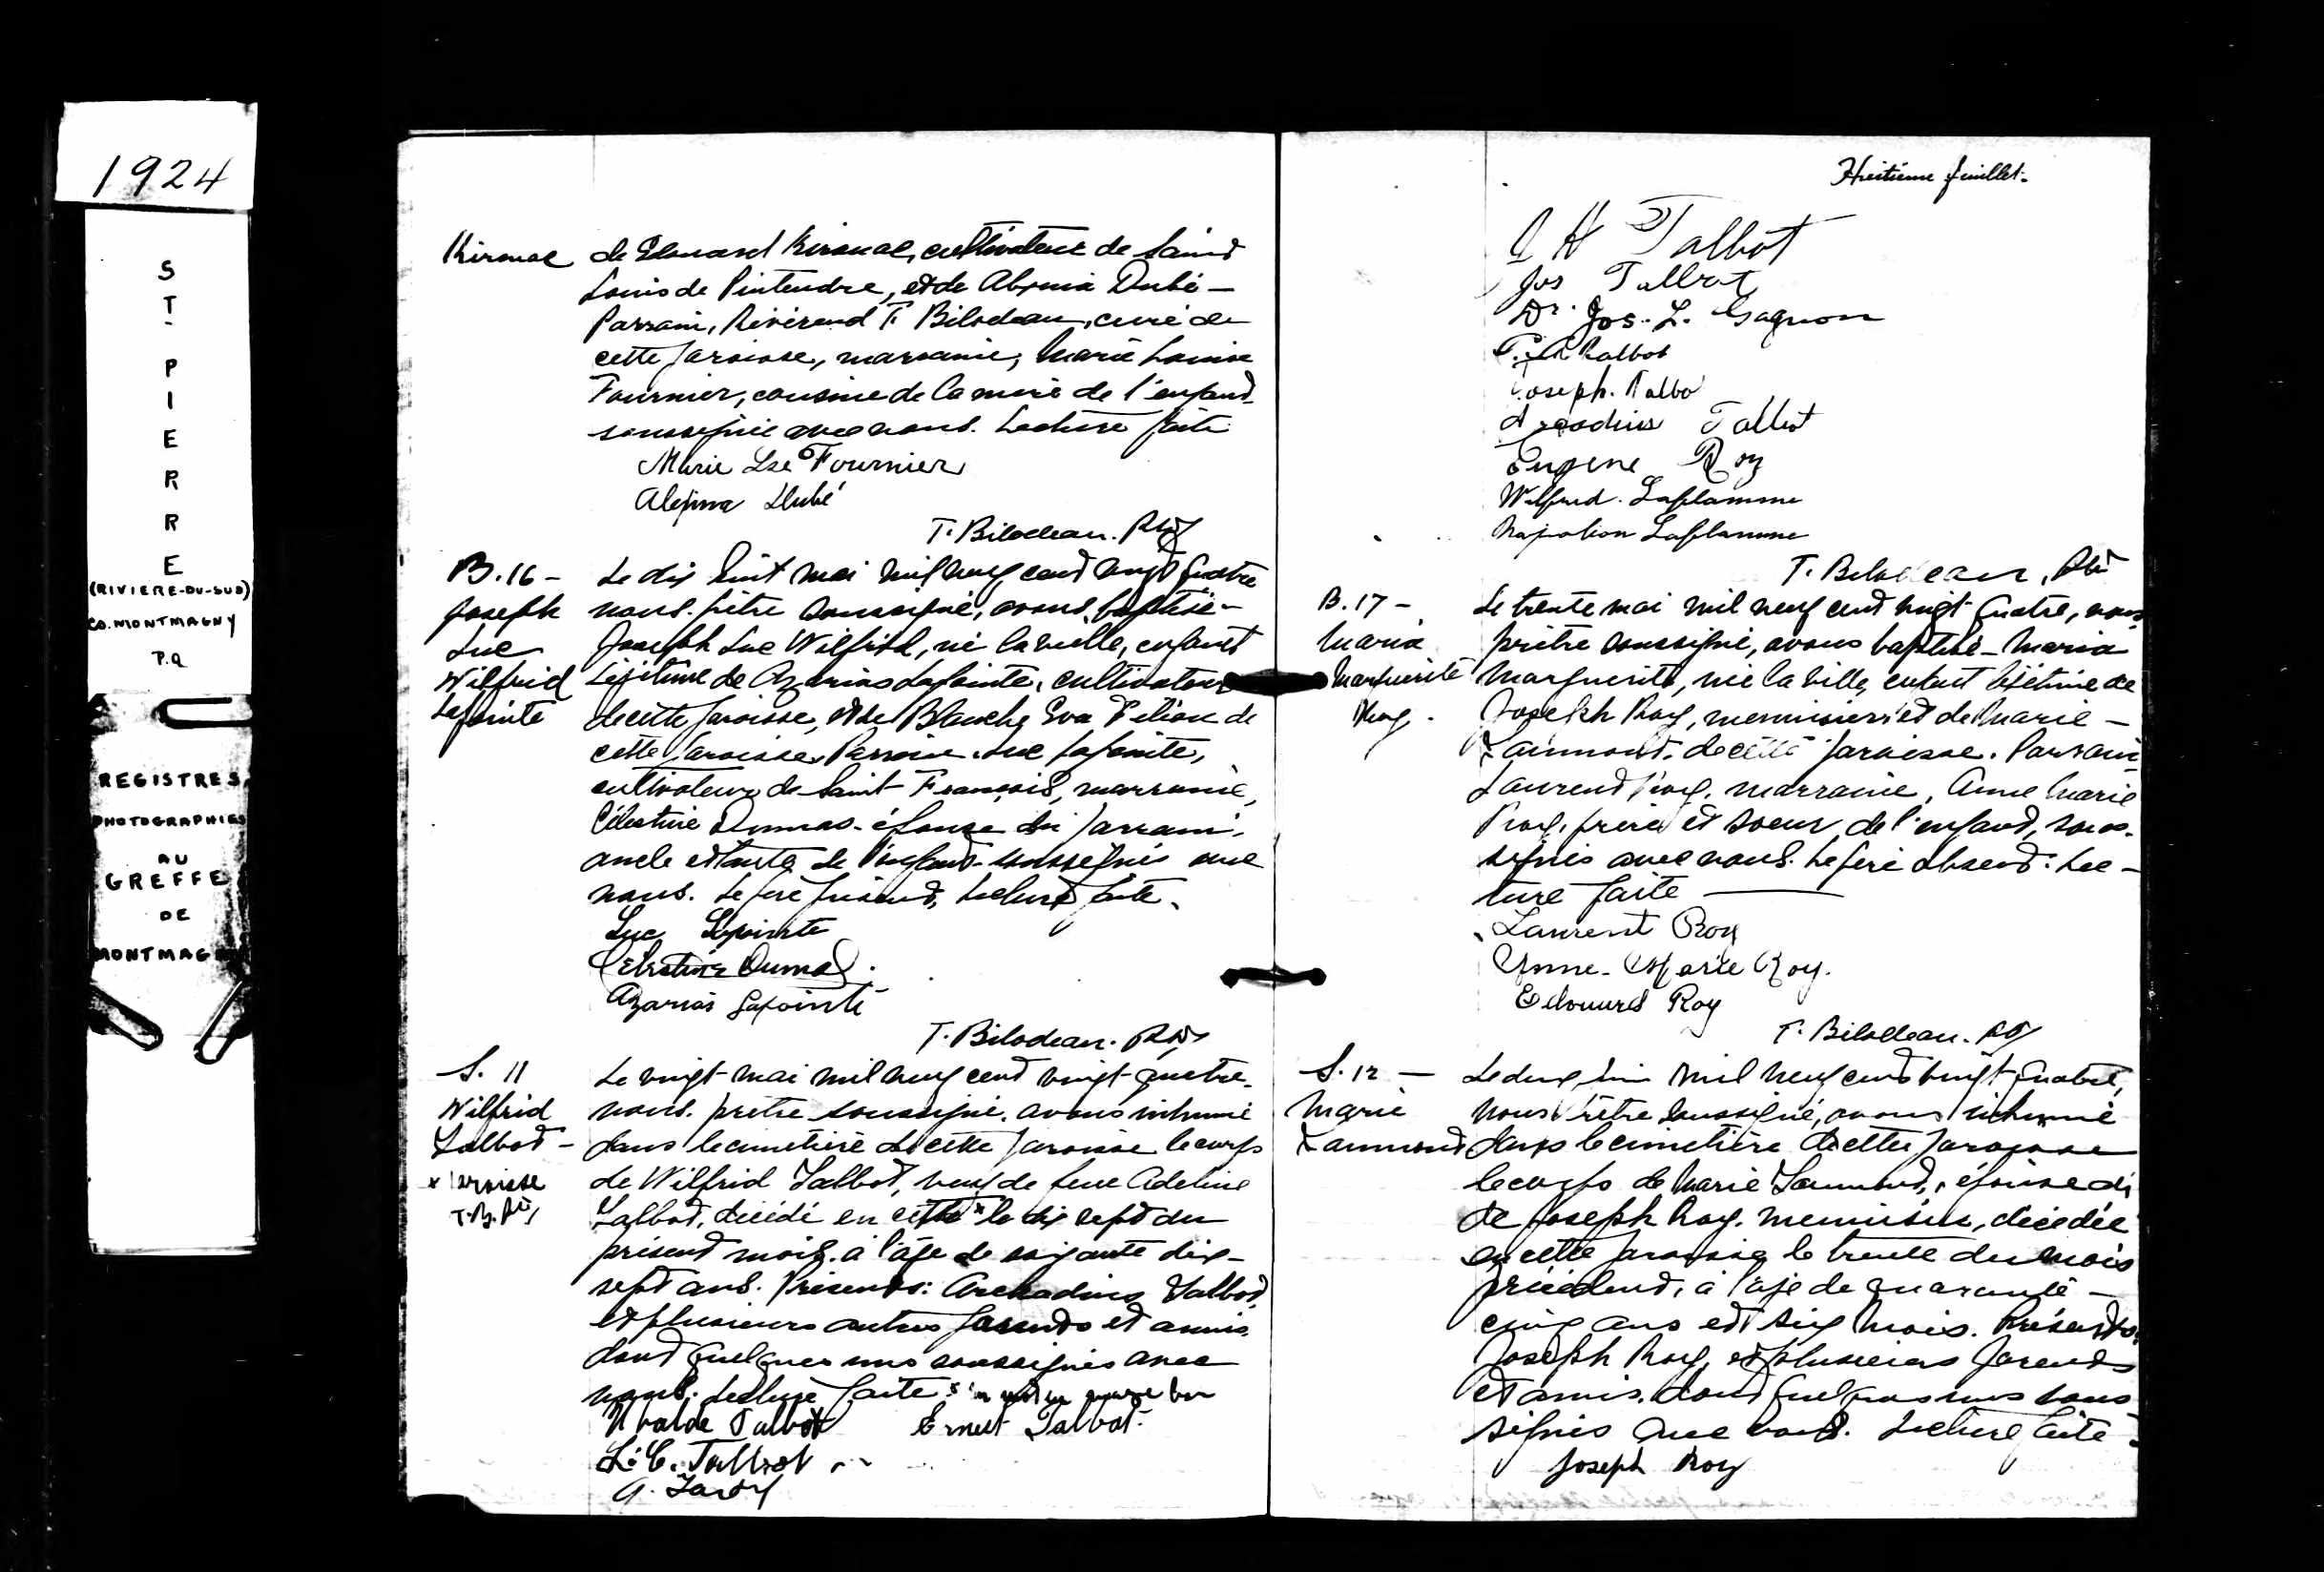 1924
ST-PIERRE
(RIVIERE-DU-SUD)
CO. MONTMAGNY
P.Q
REGISTRES
PHOTOGRAPHIES
AU
GREFFE
DE
MONTMAG
Kirouac
de Edouard Kirouac, cultivateur de Saint
Louis de Pintendre, et de Alexina Dubé -
Parrain, Révérend T. Bilodeau, curé de
cette paroisse, marraine, Marie Louise
Fournier, cousine de la mère de l'enfant
soussignée avec nous. Lecture faite
Marie Lse Fournier
Alexina Dubé
T. Bilodeau. Ptre
B. 16 -
Joseph
Luc
Wilfrid
Lapointe
Le dix huit mai mil neuf cent vingt quatre
nous. prêtre soussigné, avons baptisé -
Joseph Luc Wilfrid, né la veille, enfant
légitime de Azarias Lapointe, cultivateur
de cette paroisse, et de Blanche Eva Pelion de
cette paroisse. Parrain. Luc Lapointe,
cultivateur de Saint François, marraine,
Célestine Dumas. épouse du parrain,
oncle et tante de l'enfant. soussignés avec
nous. Le père présent, Lecture faite.
Luc Lapointe
Célestine Dumas.
Azarias Lapointe
T. Bilodeau. Ptre
S. 11
Wilfrid
Talbot -
x paroisse
T.B. Ptre
Le vingt mai mil neuf cent vingt quatre.
nous. prêtre soussigné. avons inhumé
dans le cimetière de cette paroisse le corps
de Wilfrid Talbot, veuf de feue Adeline
Talbot, décédé en cette x le dix sept du
présent mois. à l'âge de soixante dix-
sept ans. Présents: Archadius Talbot,
et plusieurs autres parents et amis
dont quelques uns soussignés avec
nous. Lecture faite. x un mot en marge bon
Ubalde Talbot Ernest Talbot.
L. C. Talbot
Huitième feuillet-
J H Talbot
Jos Talbot
Dr. Jos. L. Gagnon
Talbot
Joseph. Talbo
Arcadius Talbot
Eugene Roy
Wilfrid. Laflamme
Napoléon Laflamme
T. Bilodeau, Ptre
B. 17 -
Maria
Marguerite
Roy.
Le trente mai mil neuf cent vingt quatre, nous
prêtre soussigné, avons baptisé - Maria
Marguerite, née la veille, enfant légitime de
Joseph Roy, menuisier et de Marie -
Laumond, de cette paroisse. Parrain
Laurent Roy, marraine, Anne Marie
Roy, frère et soeur de l'enfant, sous-
signés avec nous. Le père absent: Lec-
ture faite
Laurent Roy
Anne-Marie Roy.
Edouard Roy
T. Bilodeau. Ptre
S. 12 -
Marie
Laumond
Le deux juin mil neuf cent vingt quatre,
nous prêtre soussigné, avons inhumé
dans le cimetière de cette paroisse
le corps de Marie Laumond, épouse
de Joseph Roy. menuisier, décédée
en cette paroisse le trente du mois
précédent, à l'âge de quarante -
cinq ans et six mois. Présents:
Joseph Roy, et plusieurs parents
et amis. dont quelques uns sous
signés avec nous. Lecture faite -
Joseph Roy